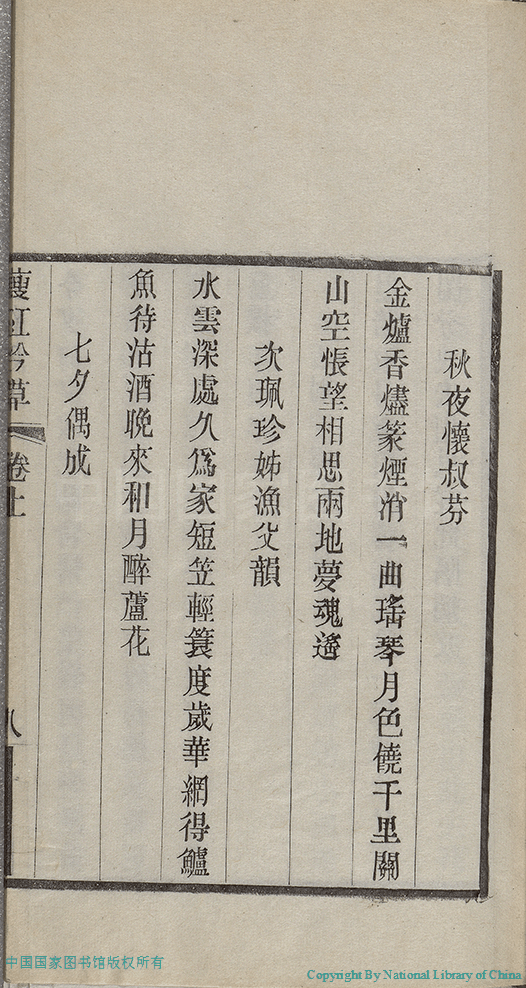 秋夜懷叔芬
金爐香燼篆煙消一曲瑤琴月色饒千里關
山空悵望相思兩地夢魂遙
次珮珍姊漁父韻
水雲深處久爲家短笠輕蓑度歲華網得鱸
魚待沽酒晚來和月醉蘆花
七夕偶成
紅吟草
卷上
八
中国国家图书馆版权所有
Copyright By National Library of China